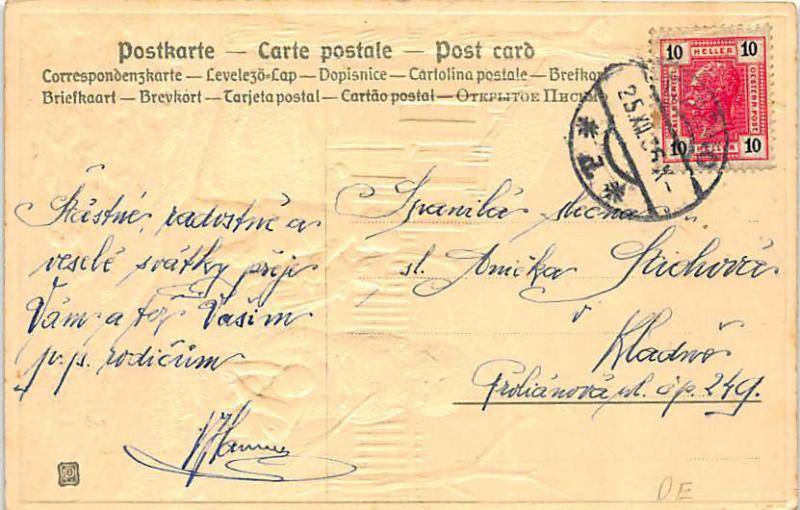 Postkarte — Carte postale — Post card
Correspondenzkarte — Levelező-Lap — Dopisnice — Cartolina postale — Brefkort
Briefkaart — Brevkort — Tarjeta postal — Cartão postal — Открытое Письмо
10 HELLER 10
10 HELLER 10
25.XII.
Šťástné, radostné a
veselé svátky přeje
Vám a též Vašim
p. p. rodičům
Spanilá slečna
sl. Anička
v
Kladně
ul. čp. 249.
DE